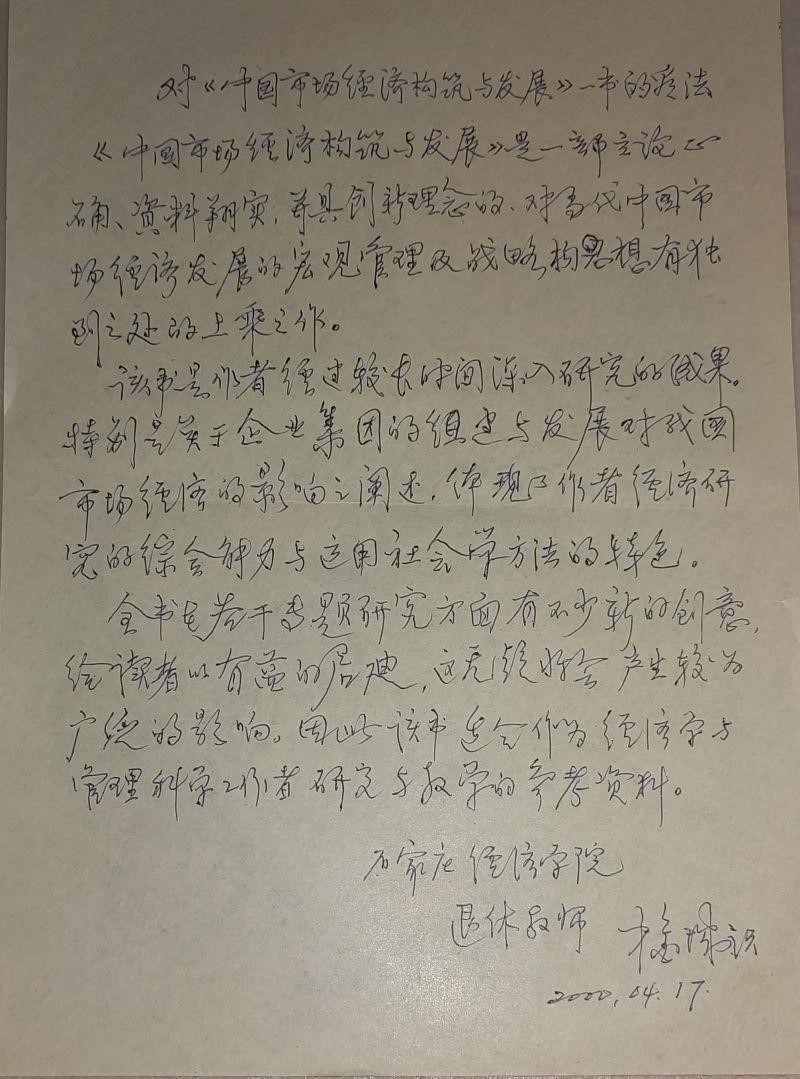 对《中国市场经济构筑与发展》一书的看法
《中国市场经济构筑与发展》是一部立论正
确、资料翔实,并具创新理念的、对当代中国市
场经济发展的宏观管理及战略构思想有独
到之处的上乘之作。
该书是作者经过较长时间深入研究的成果。
特别是关于企业集团的组建与发展对我国
市场经济的影响之阐述,体现了作者经济研
究的综合能力与运用社会学方法的特色。
全书在若干专题研究方面,有不少新的创意,
给读者以有益的启迪,这无疑将会产生较为
广泛的影响。因此该书适合作为经济学与
管理科学工作者研究与教学的参考资料。
石家庄经济学院
退休教师
2000.04.17.